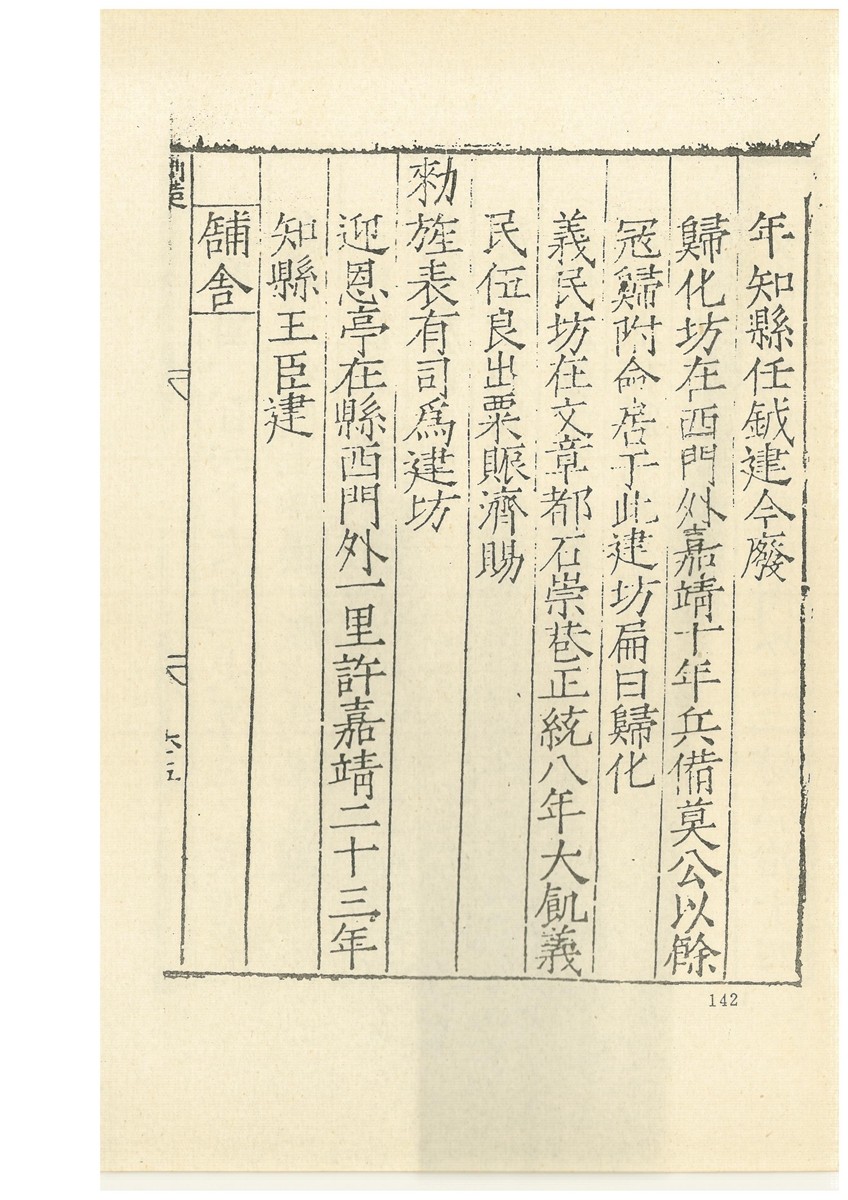 年知縣任鉞建今廢
歸化坊在西門外嘉靖十年兵備莫公以餘
冦歸附命居于此建坊扁曰歸化
義民坊在文章都石崇巷正統八年大飢義
民伍良出粟賑濟賜
勑旌表有司爲建坊
迎恩亭在縣西門外一里許嘉靖二十三年
知縣王臣建
舖舍
142